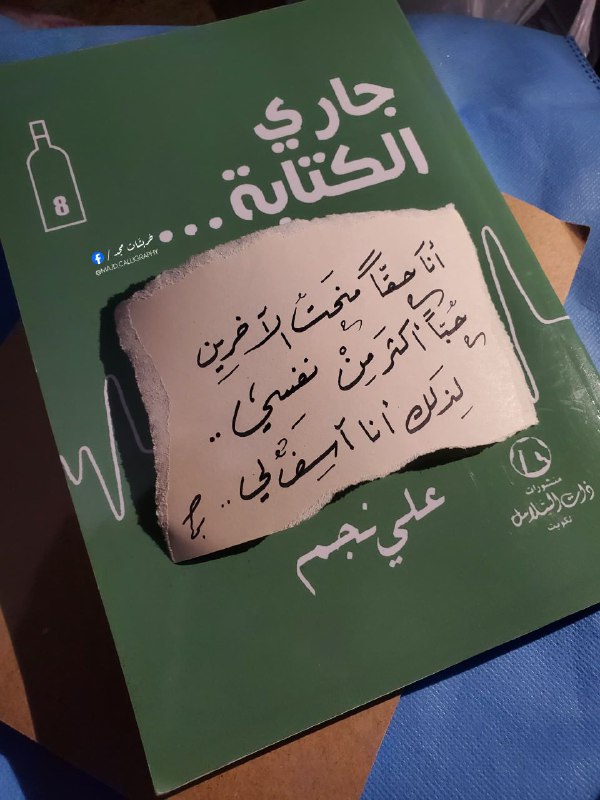 جاري
الكتابة...
8
خربشات مجد /
@MAJD.CALLIGRAPHY
أنا حقاً منحتُ الآخرين
حُبّاً أكثر مِنْ نفسِي،..
لِذلك أنا آسِفٌ لي..
علي نجم
منشورات
ذات السلاسل
الكويت